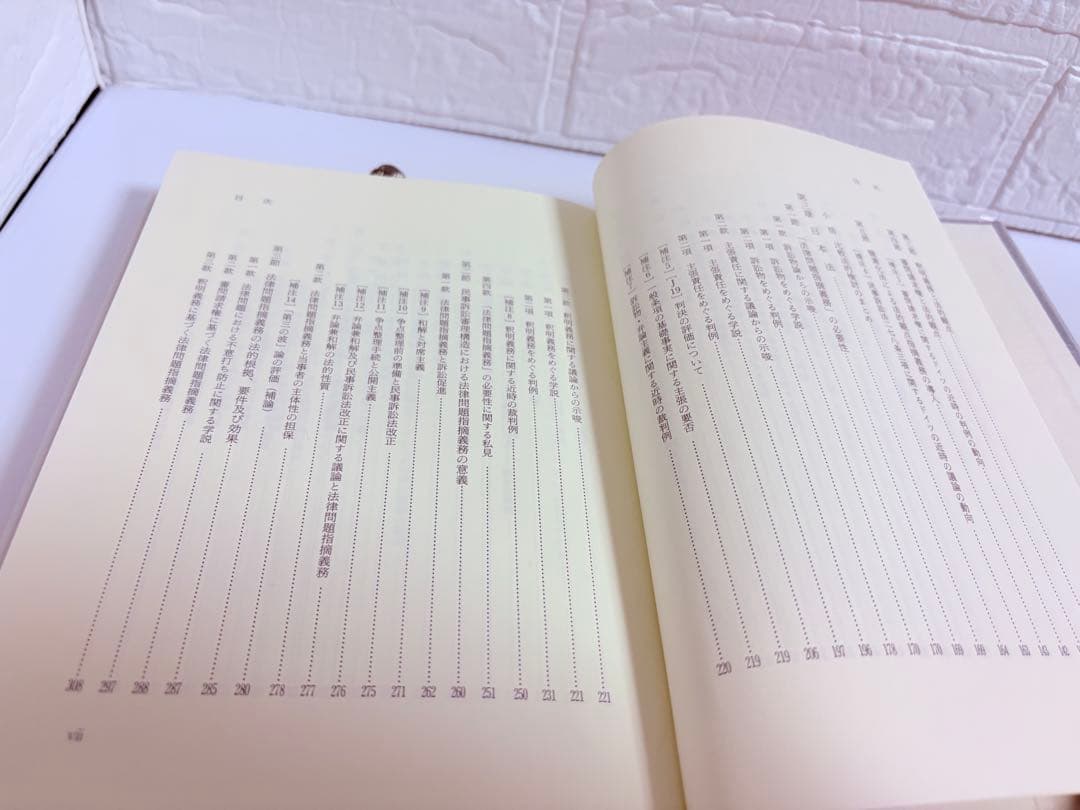 目次
第三章 日本法
第一節 「法律問題指摘義務」の必要性
第一款 訴訟物論からの示唆
第一項 訴訟物をめぐる判例
第二項 訴訟物をめぐる学説
第二款 主張責任に関する議論からの示唆
第一項 主張責任をめぐる判例
第二項 主張責任をめぐる学説
〔補注5〕「J19」判決の評価について
〔補注6〕一般条項の基礎事実に関する主張の要否
〔補注7〕訴訟物・弁論主義に関する近時の裁判例
142
143
163
164
169
169
170
170
178
196
197
206
219
219
220
目次
第三款 釈明義務に関する議論からの示唆 221
第一項 釈明義務をめぐる学説 221
第二項 釈明義務をめぐる判例 231
〔補注8〕釈明義務に関する近時の裁判例 250
第四款 「法律問題指摘義務」の必要性に関する私見 251
第二節 民事訴訟審理構造における法律問題指摘義務の意義 260
第一款 法律問題指摘義務と訴訟促進 262
〔補注9〕和解と対席主義 271
〔補注10〕争点整理前の準備と民事訴訟法改正 275
〔補注11〕争点整理手続と公開主義 276
〔補注12〕弁論兼和解及び民事訴訟法改正に関する議論と法律問題指摘義務 277
〔補注13〕弁論兼和解の法的性質 278
第二款 法律問題指摘義務と当事者の主体性の担保 280
〔補注14〕「第三の波」論の評価（補論） 285
第三節 法律問題指摘義務の法的根拠、要件及び効果 287
第一款 法律問題における不意打ち防止に関する学説 288
第二款 審問請求権に基づく法律問題指摘義務 297
第三款 釈明義務に基づく法律問題指摘義務 308
viii